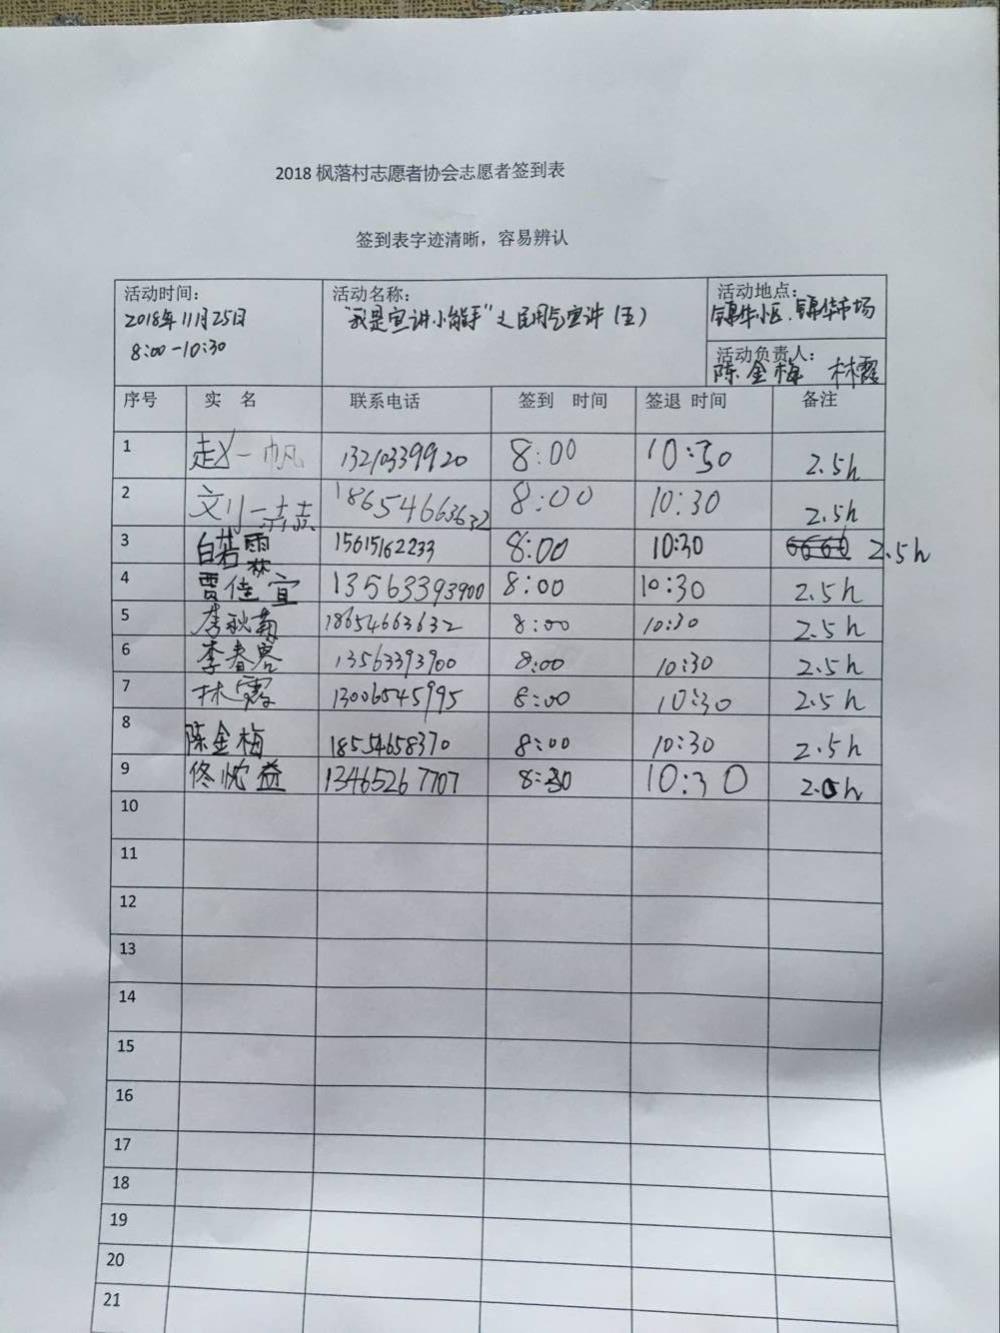 2018 枫落村志愿者协会志愿者签到表
签到表字迹清晰，容易辨认
活动时间：
2018年11月25日
8:00-10:30
活动名称：
"我是宣讲小能手"之民用气宣讲（五）
活动地点：
锦华小区、锦华市场
活动负责人：
陈金梅 林霞
序号 实 名 联系电话 签到 时间 签退 时间 备注
1 赵一帆 13210339920 8:00 10:30 2.5h
2 刘一 18654663632 8:00 10:30 2.5h
3 白若雨林 15615162233 8:00 10:30 2.5h
4 贾佳宜 13563393900 8:00 10:30 2.5h
5 李秋菊 18654663632 8:00 10:30 2.5h
6 李春容 13563393900 8:00 10:30 2.5h
7 林霞 13006545995 8:00 10:30 2.5h
8 陈金梅 18554658370 8:00 10:30 2.5h
9 佟忱益 13465267707 8:30 10:30 2.0h
10
11
12
13
14
15
16
17
18
19
20
21